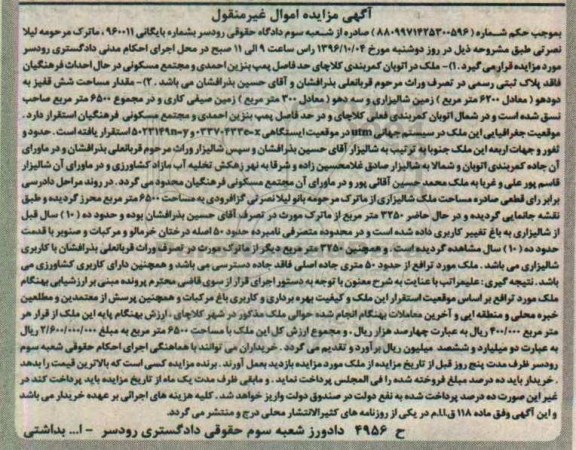 آگهی مزایده اموال غیرمنقول
بموجب حکم شماره (۸۸۰۹۹۷۱۴۲۵۳۰۰۵۹۶) صادره از شعبه سوم دادگاه حقوقی رودسر بشماره بایگانی ۹۶۰۰۱۱ ، ماترک مرحومه لیلا
نصرتی طبق مشروحه ذیل در روز دوشنبه مورخ ۱۳۹۶/۱۰/۰۴ راس ساعت ۹ الی ۱۱ صبح در محل اجرای احکام مدنی دادگستری رودسر
مورد مزایده قرار می گیرد . ۱)- ملک در اتوبان کمربندی کلاچای حد فاصل پمپ بنزین احمدی و مجتمع مسکونی در حال احداث فرهنگیان
فاقد پلاک ثبتی رسمی در تصرف وراث مرحوم قربانعلی بذرافشان و آقای حسین بذرافشان می باشد . ۲)- مقدار مساحت شش قفیز به
دودهو ( معادل ۶۲۰۰ متر مربع ) زمین شالیزاری و سه دهو ( معادل ۳۰۰ متر مربع ) زمین صیفی کاری و در مجموع ۶۵۰۰ متر مربع صاحب
نسق شده است و در شمال اتوبان کمربندی فعلی کلاچای و در حد فاصل پمپ بنزین احمدی و مجتمع مسکونی فرهنگیان استقرار دارد .
موقعیت جغرافیایی این ملک در سیستم جهانی utm در موقعیت ایستگاهی x-۰۳۳۷۰۴۳۳e و y-۵۰۲۳۱۴۹n استقرار یافته است . حدود و
ثغور و جهات اربعه این ملک جنوبا به ترتیب به شالیزار آقای حسین بذرافشان و سپس شالیزار وراث مرحوم قربانعلی بذرافشان و در ماورای
آن جاده کمربندی اتوبان و شمالا به شالیزار صادق غلامحسین زاده و شرقا به نهر زهکش تخلیه آب مازاد کشاورزی و در ماورای آن شالیزار
قاسم پور علی و غربا به ملک محمد حسین آقائی پور و در ماورای آن مجتمع مسکونی فرهنگیان محدود می گردد . در روند مراحل دادرسی
برابر رای قطعی صادره مساحت ملک شالیزاری از ماترک مرحومه بانو لیلا نصرتی گزافرودی به مساحت ۶۵۰۰ متر مربع محرز گردیده و طبق
نقشه جانمایی گردیده و در حال حاضر ۳۲۵۰ متر مربع از ماترک مورث در تصرف آقای حسین بذرافشان بوده و حدود ده (۱۰) سال قبل
از شالیزاری به باغ تغییر کاربری داده شده است و در محدوده متصرفی نامبرده حدود ۵۰ اصله درختان خرمالو و مرکبات و صنوبر با قدمت
حدود ده (۱۰) سال مشاهده گردیده است . و همچنین ۳۲۵۰ متر مربع دیگر از ماترک مورث در تصرف وراث قربانعلی بذرافشان با کاربری
شالیزاری می باشد . ملک مورد ترافع از حدود ۵۰ متری جاده اصلی فاقد جاده دسترسی می باشد و همچنین دارای کاربری کشاورزی می
باشد. نتیجه گیری : علیهراتب با عنایت به شرح معنون با توجه به دستور اجرای قرار از سوی قاضی محترم پرونده مبنی بر ارزشیابی بهنگام
ملک مورد ترافع بر اساس موقعیت استقرار این ملک و کیفیت بهره برداری و کاربری باغ مرکبات و همچنین پرس از معتمدین و مطلعین
خبره محلی و منطقه ایی و آخرین معاملات بهنگام انجام شده حوالی ملک مذکور در شهر کلاچای ، ارزش بهنگام پایه این ملک از قرار هر
متر مربع ۴۰۰/۰۰۰ ریال به عبارت چهارصد هزار ریال . و مجموع ارزش کل این ملک با مساحت ۶۵۰۰ متر مربع به مبلغ ۲/۶۰۰/۰۰۰/۰۰۰ ریال
به عبارت دو میلیارد و ششصد میلیون ریال برآورد و تقدیم می گردد . خریداران می توانند با هماهنگی اجرای احکام حقوقی شعبه سوم
رودسر ظرف مدت پنج روز قبل از تاریخ مزایده از ملک مورد مزایده بازدید بعمل آورند . برنده مزایده کسی است که بالاترین قیمت را بدهد
. خریدار باید ده درصد مبلغ فروخته شده را فی المجلس پرداخت نماید . و مابقی ظرف مدت یک ماه از تاریخ مزایده باید پرداخت کند در
غیر این صورت ده درصد پرداخت شده به نفع دولت در صندوق دولت واریز خواهد شد . کلیه هزینه های اجرائی بر عهده خریدار می باشد
و این آگهی وفق ماده ۱۱۸ ق.ا.ا.م در یکی از روزنامه های کثیرالانتشار محلی درج و منتشر می گردد.
ح ۴۹۵۶ دادورز شعبه سوم حقوقی دادگستری رودسر - ا... بداشتی